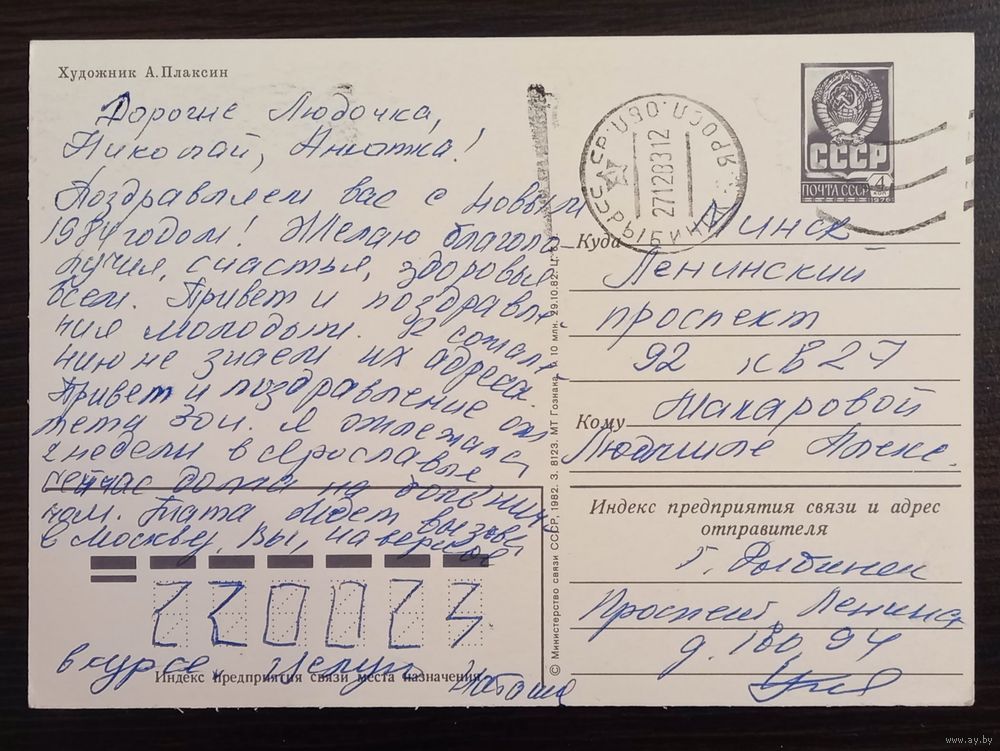 Художник А.Плаксин
Дорогие Людочка,
Николай, Анютка!
Поздравляем вас с новым
1984 годом! Желаю благопо-
лучия, счастья, здоровья
всем. Привет и поздравле-
ния молодым. К сожале-
нию не знаем их адреса.
Привет и поздравление от
тёти Зои. Я отлежала
2 недели в Ярославле
сейчас дома на больнич-
ном. Тата ждет вызова
в Москву. Вы, наверное
в курсе. Целую
Наташа
Индекс предприятия связи места назначения
© Министерство связи СССР, 1982. З. 8123. МТ Гознака. 10 млн. 29.10.82. Ц.
РЫБИНСК
27128312
СССР
ПОЧТА СССР 4
1976
Куда Минск
Ленинский
проспект
92 кв 27
Кому Макаровой
Людмиле Алекс.
Индекс предприятия связи и адрес
отправителя
г. Рыбинск
Проспект Ленина
д. 180, 94
www.ay.by